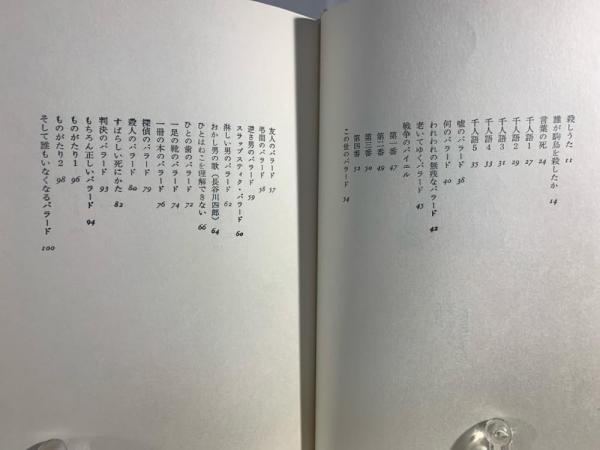 殺しうた 11
誰が駒鳥を殺したか 14
言葉の死 24
千人語1 27
千人語2 29
千人語3 31
千人語4 33
千人語5 35
嘘のバラード 38
何のバラード 40
われわれの無残なバラード 42
老いてゆくバラード 45
戦争のバイエル
第一番 47
第二番 49
第三番 50
第四番 52
この世のバラード 54
友人のバラード 57
弔問のバラード 58
逆さ男のバラード 59
スラップスティク・バラード 60
淋しい男のバラード 62
おかし男の歌（長谷川四郎） 64
ひとはねこを理解できない 66
ひとの歯のバラード 72
一足の靴のバラード 74
一冊の本のバラード 76
探偵のバラード 79
殺人のバラード 80
すばらしい死にかた 82
判決のバラード 93
もちろん正しいバラード 94
ものがたり1 96
ものがたり2 98
そして誰もいなくなるバラード 100